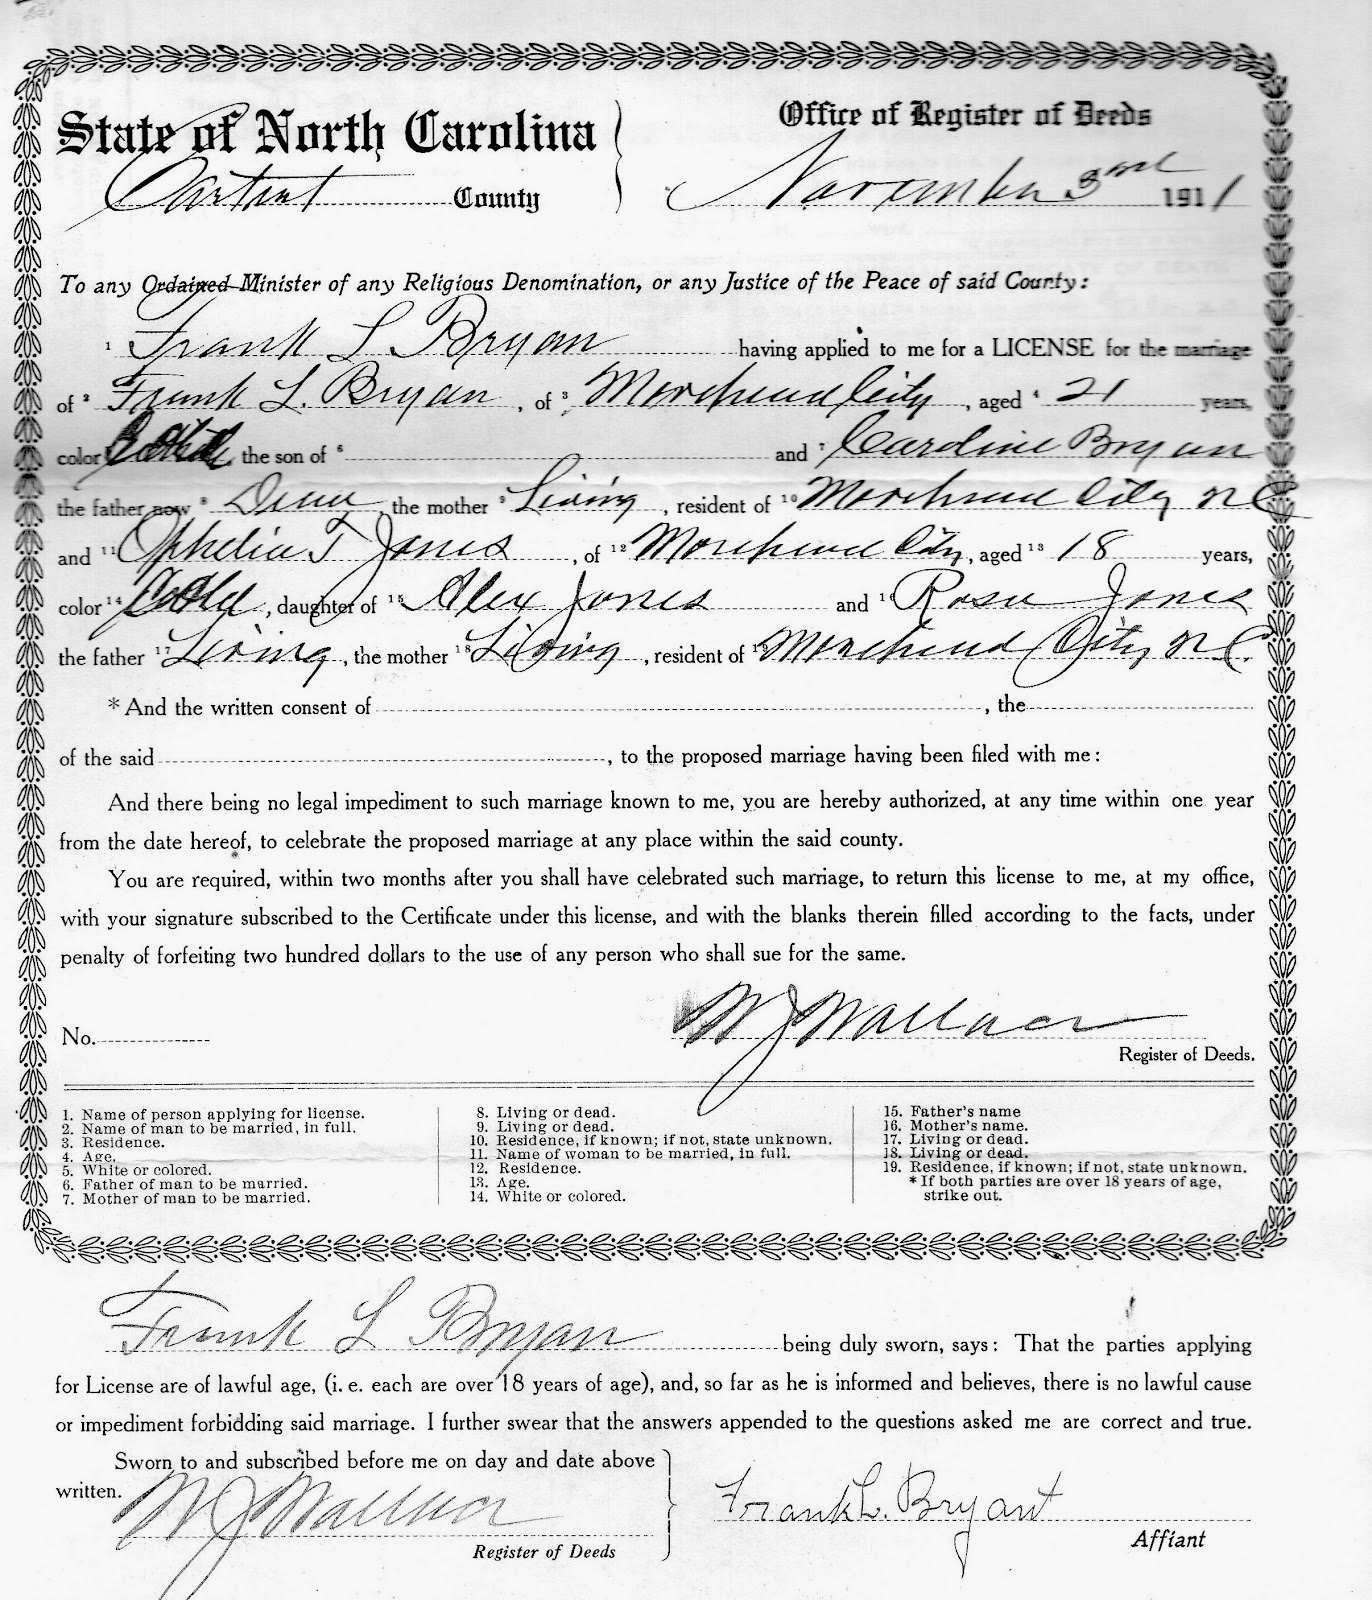 State of North Carolina
Carteret County
Office of Register of Deeds
November 3rd 1911
To any Ordained Minister of any Religious Denomination, or any Justice of the Peace of said County:
1 Frank L Bryan having applied to me for a LICENSE for the marriage
of 2 Frank L. Bryan, of 3 Morehead City, aged 4 21 years,
color, the son of 6 and 7 Caroline Bryan
the father now 8, the mother 9 Living, resident of 10 Morehead City N C
and 11 Ophelia T Jones, of 12 Morehead City, aged 13 18 years,
color 14, daughter of 15 Alex Jones and 16 Rosa Jones
the father 17 Living, the mother 18 Living, resident of 19 Morehead City N C.
* And the written consent of, the
of the said, to the proposed marriage having been filed with me:
And there being no legal impediment to such marriage known to me, you are hereby authorized, at any time within one year
from the date hereof, to celebrate the proposed marriage at any place within the said county.
You are required, within two months after you shall have celebrated such marriage, to return this license to me, at my office,
with your signature subscribed to the Certificate under this license, and with the blanks therein filled according to the facts, under
penalty of forfeiting two hundred dollars to the use of any person who shall sue for the same.
No.
W J Wallace
Register of Deeds.
1. Name of person applying for license.
2. Name of man to be married, in full.
3. Residence.
4. Age.
5. White or colored.
6. Father of man to be married.
7. Mother of man to be married.
8. Living or dead.
9. Living or dead.
10. Residence, if known; if not, state unknown.
11. Name of woman to be married, in full.
12. Residence.
13. Age.
14. White or colored.
15. Father's name
16. Mother's name.
17. Living or dead.
18. Living or dead.
19. Residence, if known; if not, state unknown.
* If both parties are over 18 years of age,
strike out.
Frank L Bryan being duly sworn, says: That the parties applying
for License are of lawful age, (i. e. each are over 18 years of age), and, so far as he is informed and believes, there is no lawful cause
or impediment forbidding said marriage. I further swear that the answers appended to the questions asked me are correct and true.
Sworn to and subscribed before me on day and date above
written.
W J Wallace
Register of Deeds
Frank L. Bryant
Affiant